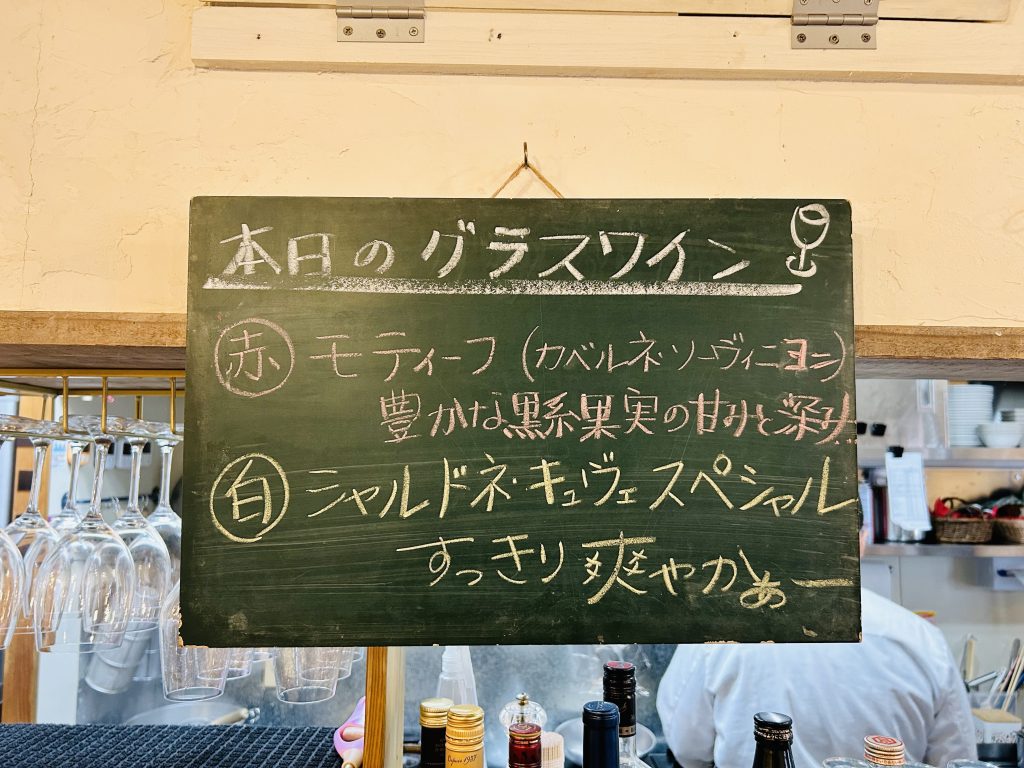 本日のグラスワイン
赤 モティーフ (カベルネ・ソーヴィニヨン)
豊かな黒系果実の甘みと深み
白 シャルドネ・キュヴェスペシャル
すっきり爽やかぁー
Depuis 1937